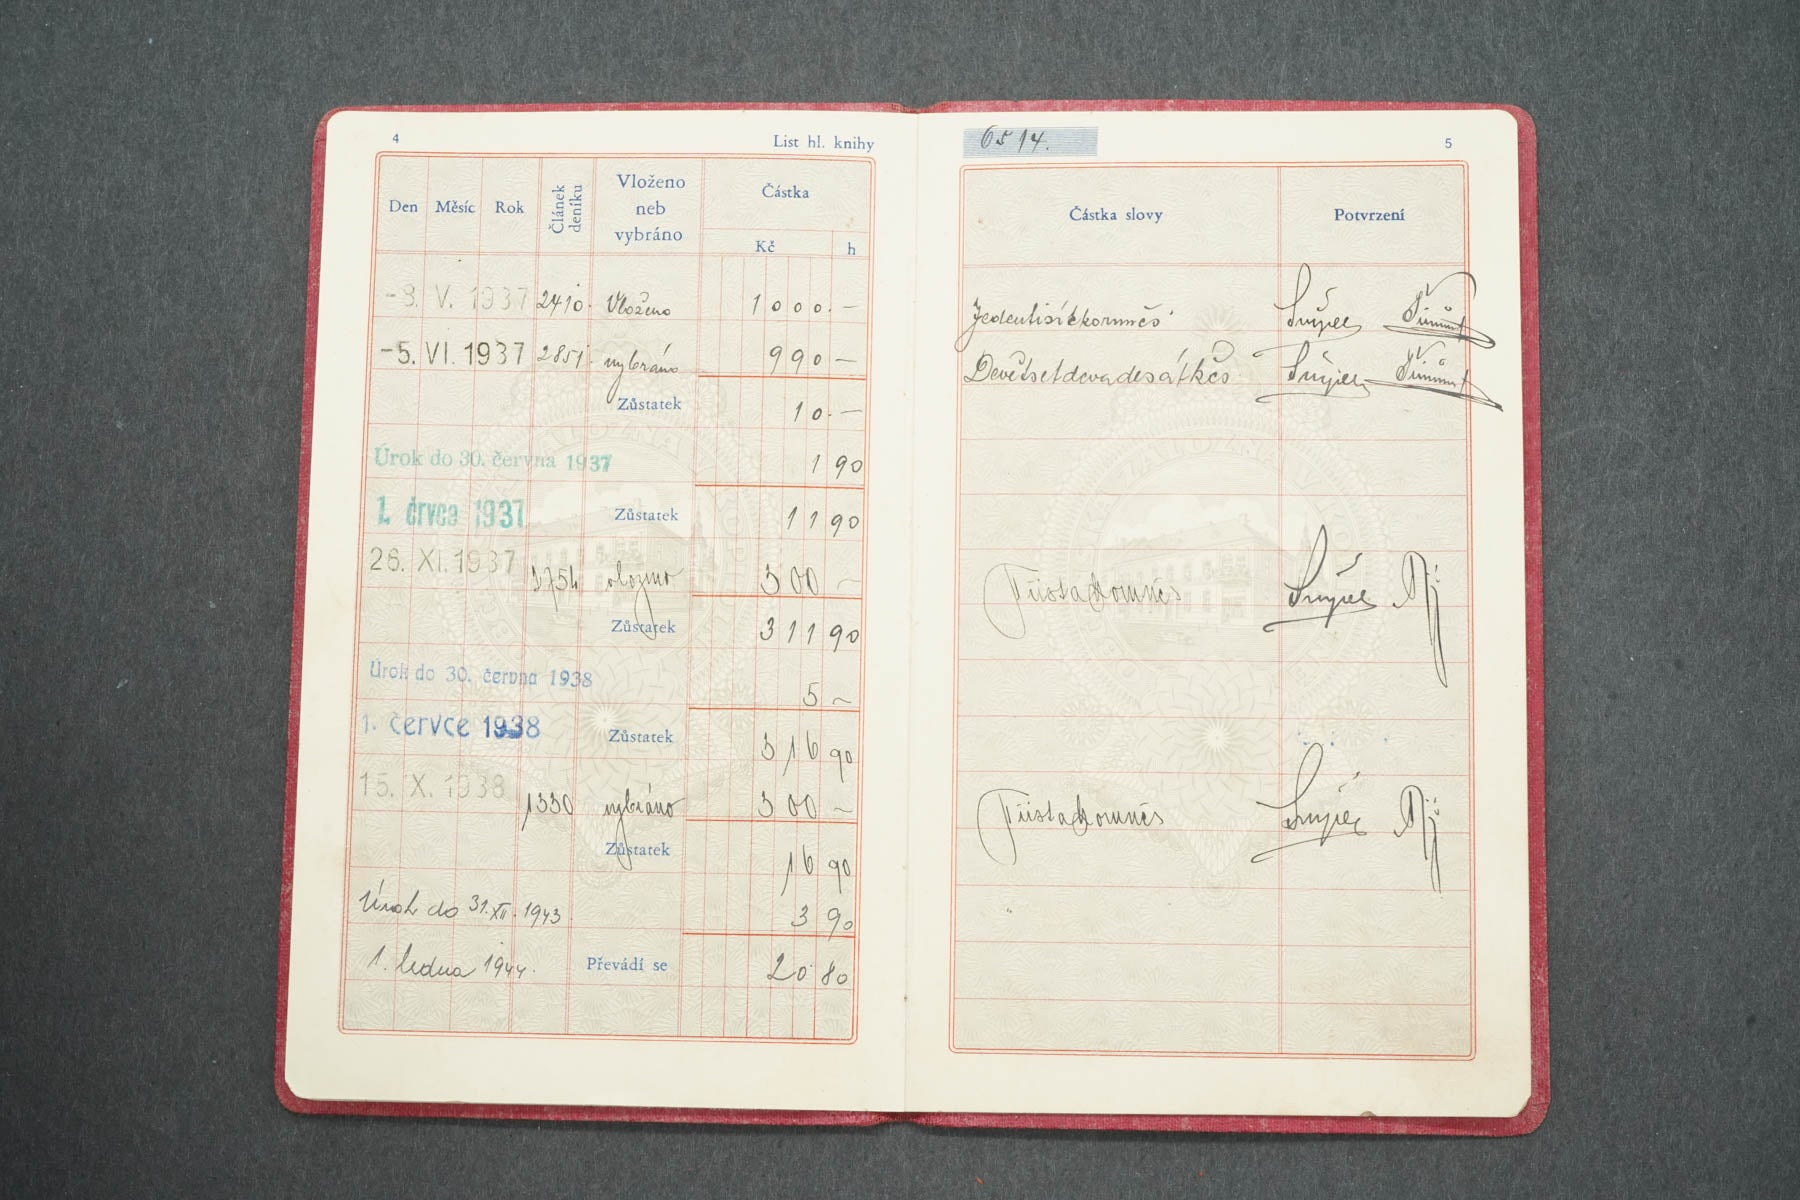 4
List hl. knihy
6514.
5
Den Měsíc Rok Článek deníku Vloženo neb vybráno Částka Kč h
Částka slovy Potvrzení
-3. V. 1937 2410. Vloženo 1000.— Jedentisíckorunčs
-5. VI. 1937 2851. vybráno 990 — Devětsetdevadesátkčs
Zůstatek 10.—
Úrok do 30. června 1937 1 90
1. črvce 1937 Zůstatek 11 90
26. XI. 1937 3754 vloženo 300 — Třistakorunčs
Zůstatek 311 90
Úrok do 30. června 1938 5 —
1. července 1938 Zůstatek 316 90
15. X. 1938 1330 vybráno 300 — Třistakorunčs
Zůstatek 16 90
Úrok do 31. XII. 1943 3 90
1. ledna 1944. Převádí se 20 80